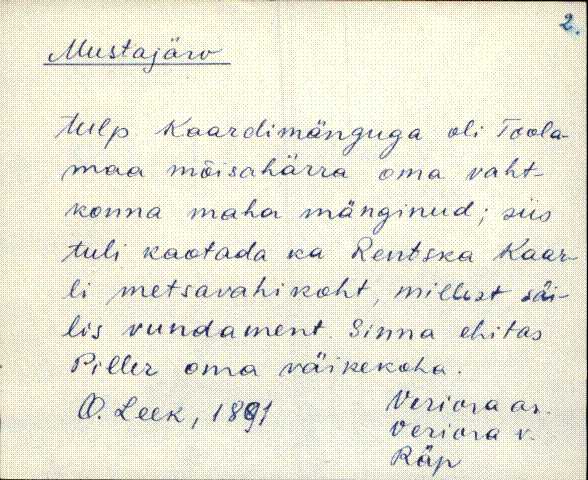 2.
Mustajärv
tulp Kaardimänguga oli Toola-
maa mõisahärra oma vaht-
konna maha mänginud; siis
tuli kaotada ka Rentska Kaar-
li metsavahikoht, millest säi-
lis vundament. Sinna ehitas
Piller oma väikekoha.
O. Leek, 1891
Veriora as.
Veriora v.
Räp